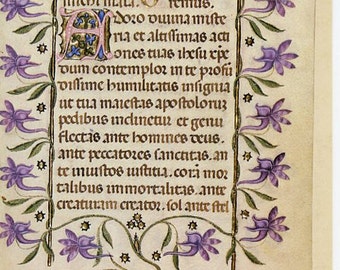 Oremus.
Adoro divina miste
ria et altissimas acti
ones tuas ihesu xpe
dum contemplor in te profu
dissime humilitatis insignia
ut tua maiestas apostolorum
pedibus inclinetur et genu
flectas ante homines deus.
ante peccatores sanctitas. an
te iniustos iustitia. cora mor
talibus immortalitas. ante
creaturam creator. sol ante stel